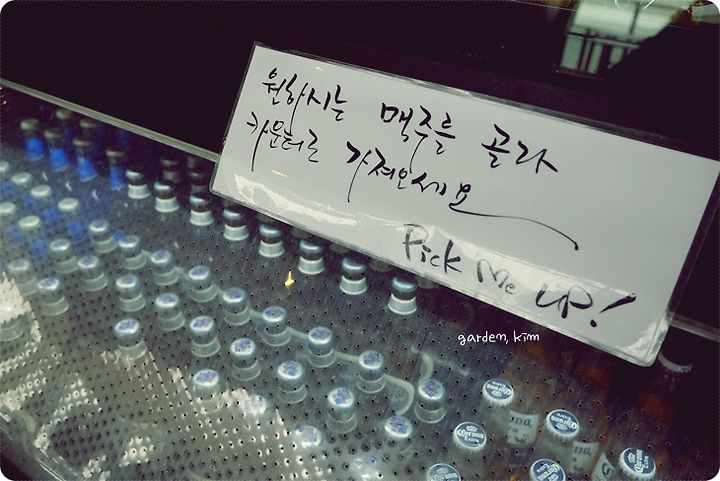 원하시는 맥주를 골라
카운터로 가져오세요
Pick Me UP!
garden, kim
Corona